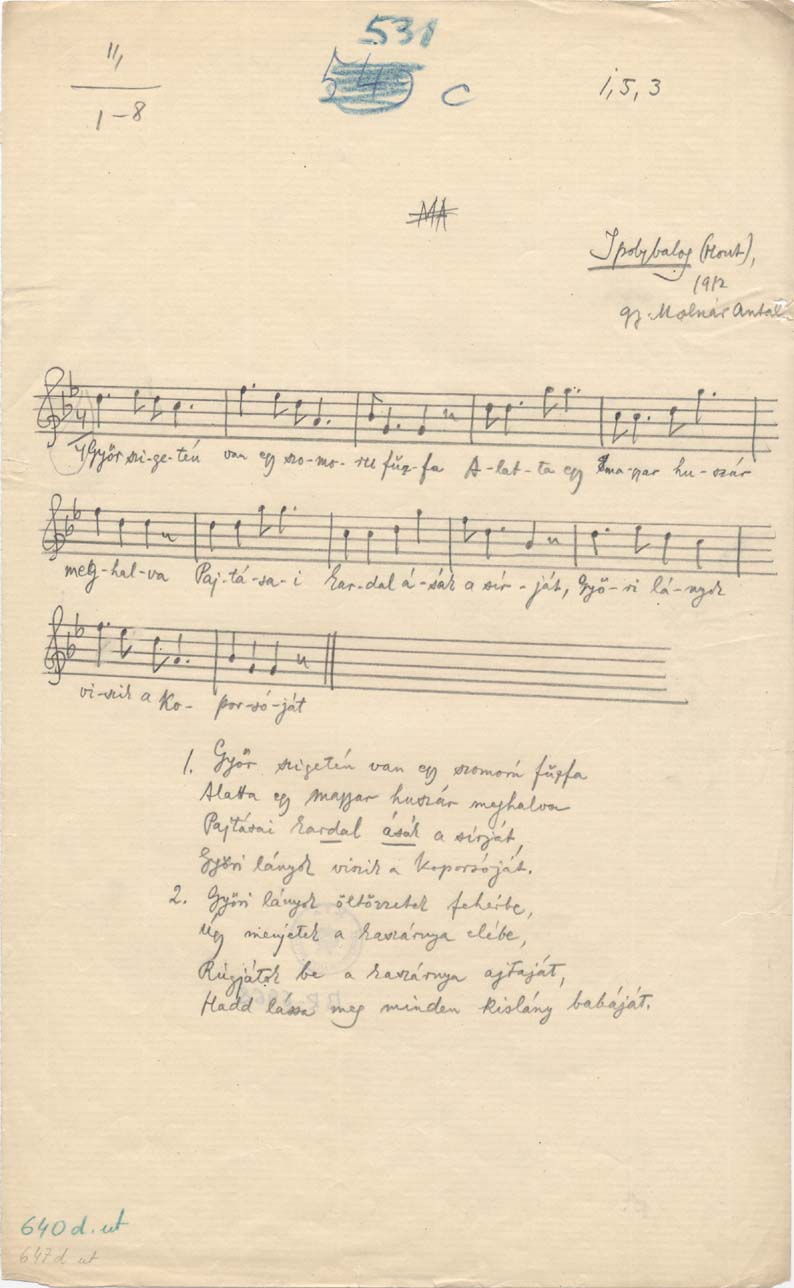 531
11,
1-8
545 C
i, 5, 3
MA
Ipolybalog (Hont),
1912
gy. Molnár Antal
Győr szi-ge-tén van egy szo-mo-rú fűz-fa A-lat-ta egy ma-gyar hu-szár
meg-hal-va Paj-tá-sa-i kar-dal á-sák a sír-ját, Győ-ri lá-nyok
vi-szik a ko- por-só-ját
1. Győr szigetén van egy szomorú fűzfa
Alatta egy magyar huszár meghalva
Pajtásai kardal ásák a sírját,
Győri lányok viszik a koporsóját.
2. Győri lányok öltözzetek fehérbe,
Úgy menjetek a kaszárnya elébe,
Rúgjátok be a kaszárnya ajtaját,
Hadd lássa meg minden kislány babáját.
640 d. ut
647 d ut